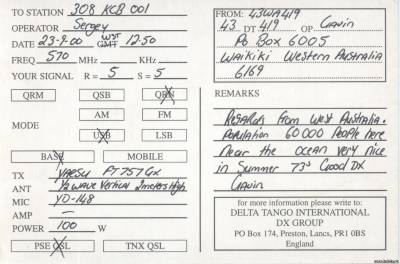 TO STATION 308 KCB 001
OPERATOR Sergey
DATE 23-9-00 WST GMT 12:50
FREQ 570 MHz KHz
YOUR SIGNAL R = 5 S = 5
QRM QSB QRN
MODE
AM FM
USB LSB
BASE MOBILE
TX YAESU FT757Gx
ANT 1/2 WAVE Vertical 2 meters High
MIC YD-148
AMP —
POWER 100 W
PSE QSL TNX QSL
FROM: 43WA419
43 DT 419 OP Gavin
Po Box 6005
WAIKIKI Western Australia
6169
REMARKS
Regards From West Australia.
Population 60 000 People here
Near the ocean very nice
in Summer 73s Good DX
Gavin
for more information please write to:
DELTA TANGO INTERNATIONAL
DX GROUP
PO Box 174, Preston, Lancs, PR1 0BS
England